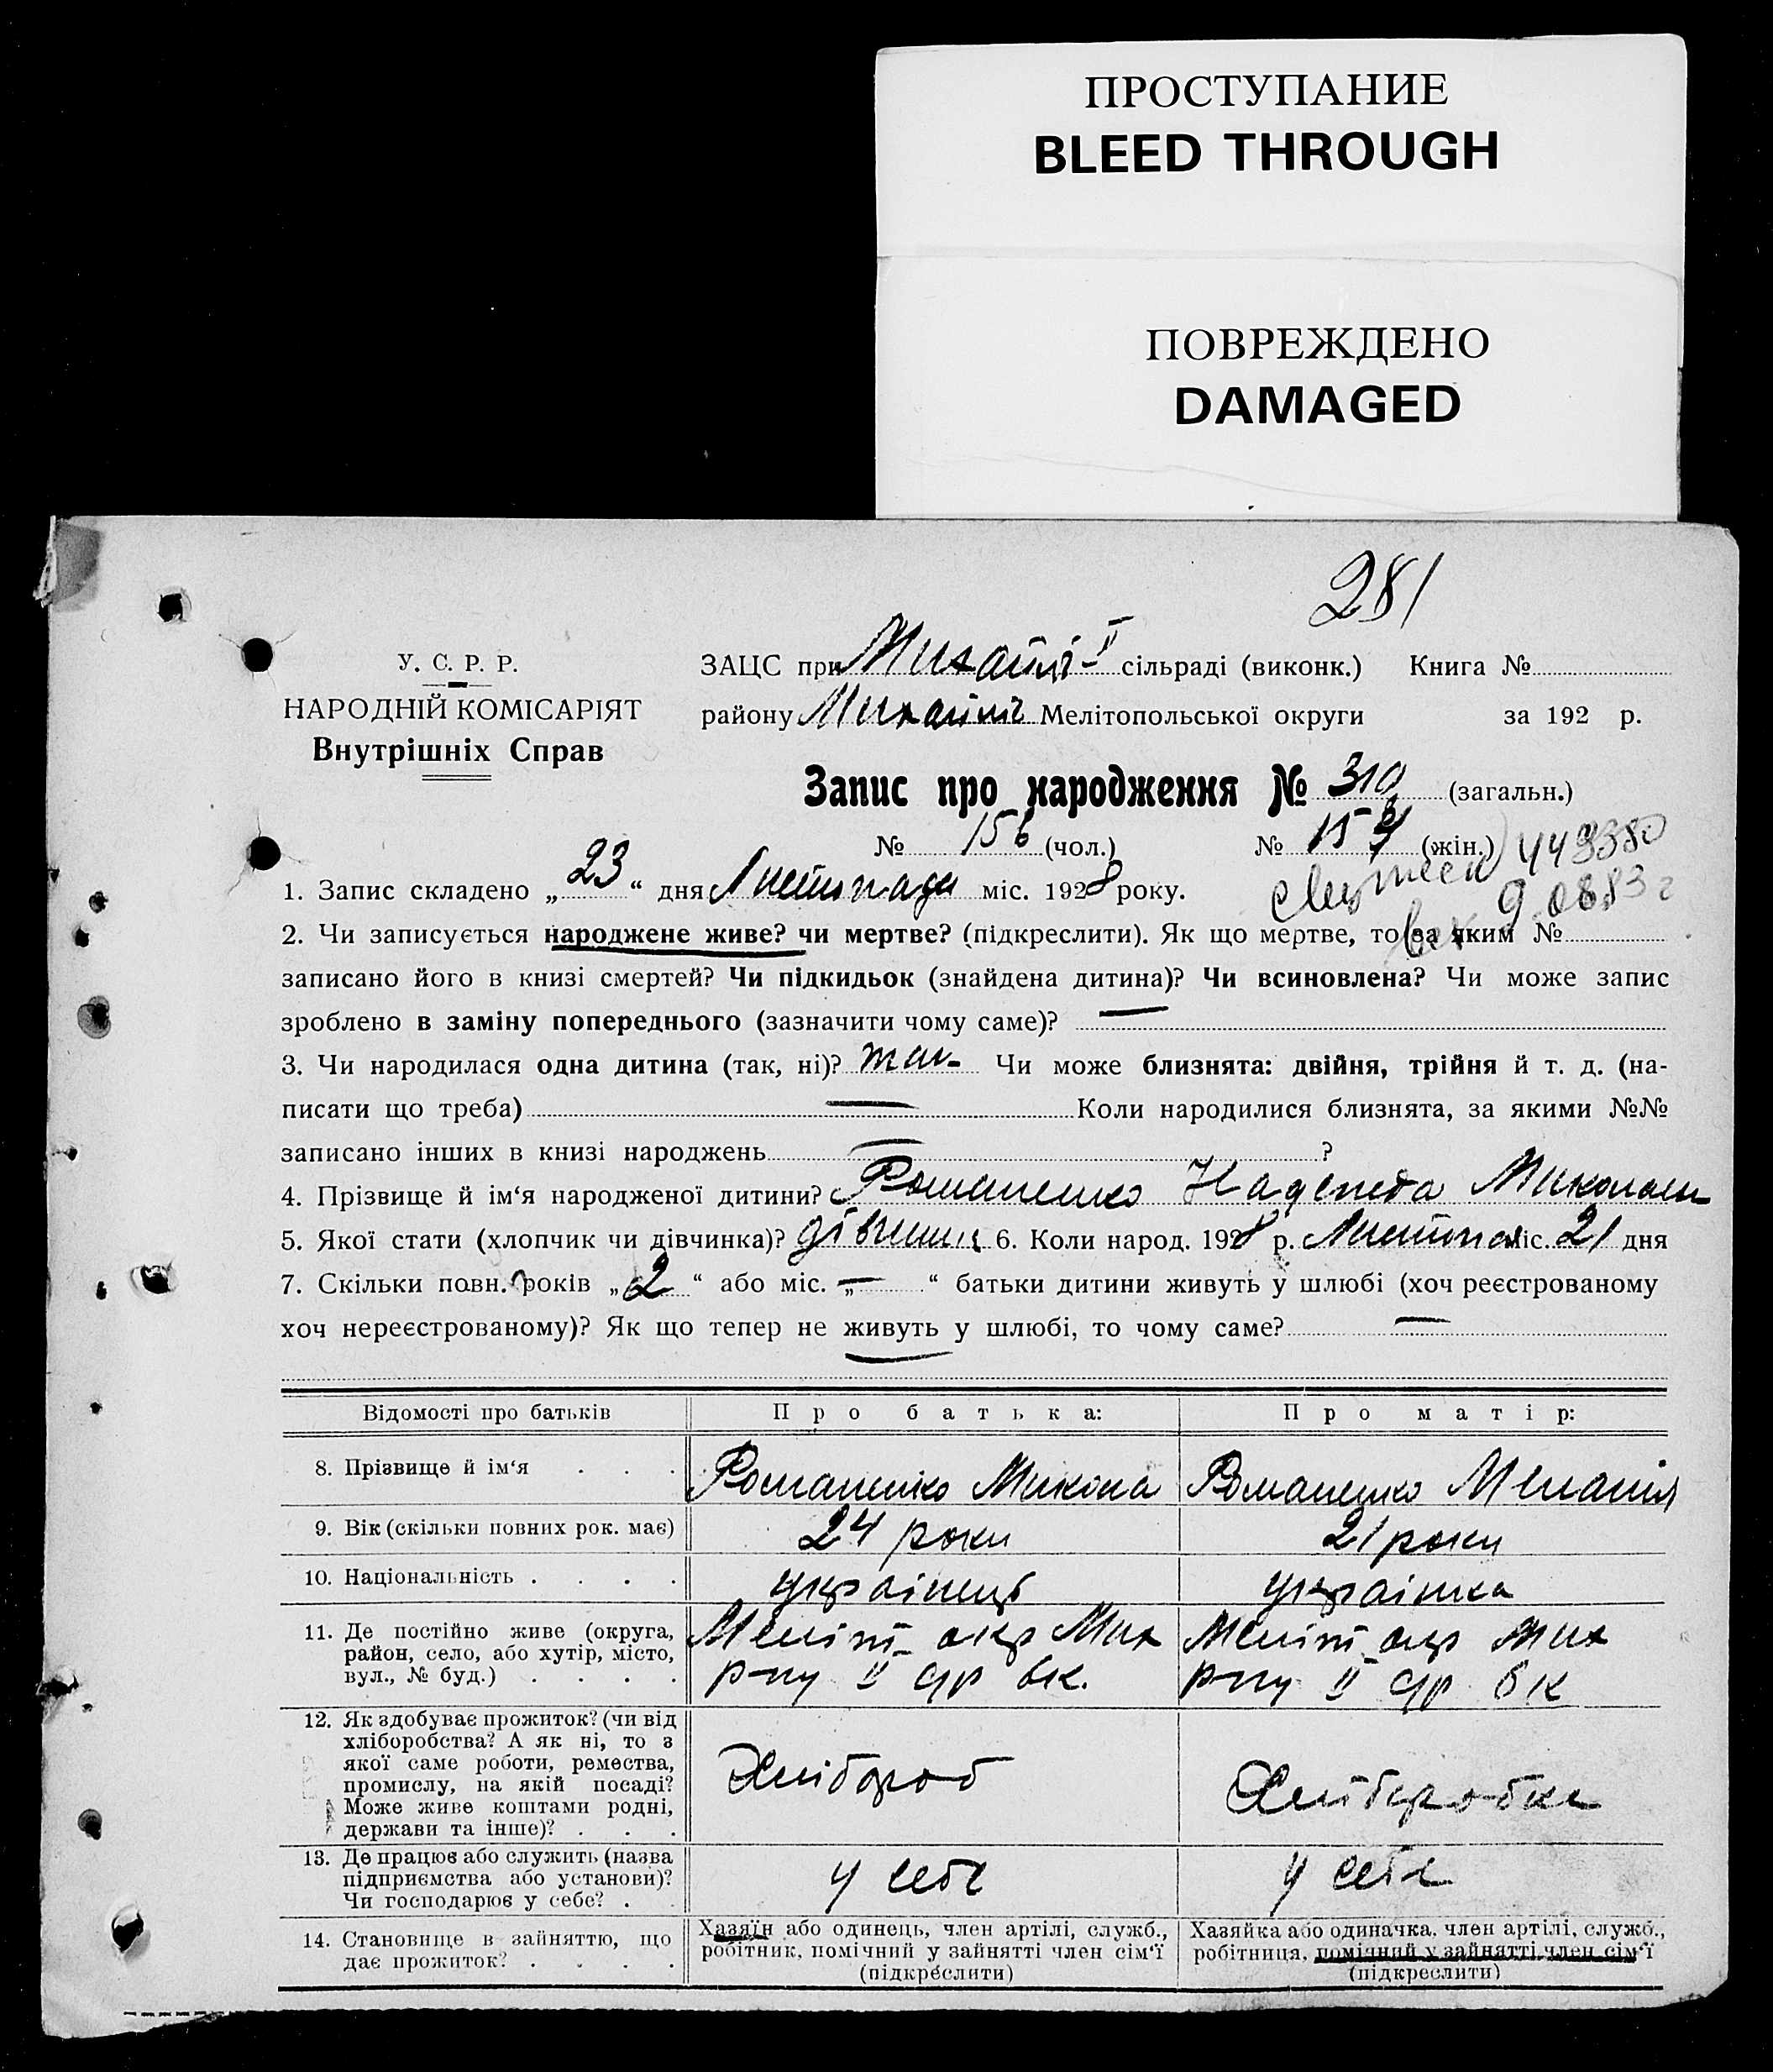 ПРОСТУПАНИЕ
BLEED THROUGH
ПОВРЕЖДЕНО
DAMAGED
281
У. С. Р. Р.
НАРОДНІЙ КОМІСАРІЯТ
Внутрішніх Справ
ЗАЦС при II сільраді (виконк.) Книга №
району Мелітопольської округи за 192 р.
Запис про народження № 310 (загальн.)
№ 156 (чол.) № 154 (жін.)
1. Запис складено „23“ дня Листопада міс. 1928 року.
2. Чи записується народжене живе? чи мертве? (підкреслити). Як що мертве, то за яким №
записано його в книзі смертей? Чи підкидьок (знайдена дитина)? Чи всиновлена? Чи може запис
зроблено в заміну попереднього (зазначити чому саме)? —
3. Чи народилася одна дитина (так, ні)? так Чи може близнята: двійня, трійня й т. д. (на-
писати що треба) — Коли народилися близнята, за якими №№
записано інших в книзі народжень — ?
4. Прізвище й ім‘я народженої дитини? Романенко Надежда
5. Якої стати (хлопчик чи дівчинка)? дівчинк 6. Коли народ. 1928 р. Листопа міс. 21 дня
7. Скільки повн. років „2“ або міс. „—“ батьки дитини живуть у шлюбі (хоч реєстрованому
хоч нереєстрованому)? Як що тепер не живуть у шлюбі, то чому саме? —
Відомості про батьків Про батька: Про матір:
8. Прізвище й ім‘я . . . Романенко Микола Романенко Меланія
9. Вік (скільки повних рок. має) 24 роки 21 роки
10. Національність . . . . українець українка
11. Де постійно живе (округа,
район, село, або хутір, місто,
вул., № буд.) . . . .
Меліт окр Мих
р-ну II др вк.
Меліт окр Мих
р-ну II др вк
12. Як здобуває прожиток? (чи від
хліборобства? А як ні, то з
якої саме роботи, ремества,
промислу, на якій посаді?
Може живе коштами родні,
держави та інше)? . . .
Хлібороб
Хліборобка
13. Де працює або служить (назва
підприємства або установи)?
Чи господарює у себе? . .
у себе
у себе
14. Становище в зайняттю, що
дає прожиток? . . . .
Хазяїн або одинець, член артілі, служб.,
робітник, помічний у зайнятті член сім‘ї
(підкреслити)
Хазяйка або одиначка, член артілі, служб.,
робітниця, помічний у зайнятті член сім‘ї
(підкреслити)